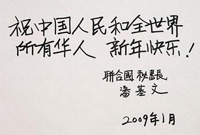 祝中国人民和全世界
所有华人 新年快乐！
联合国秘書長
潘基文
2009年1月